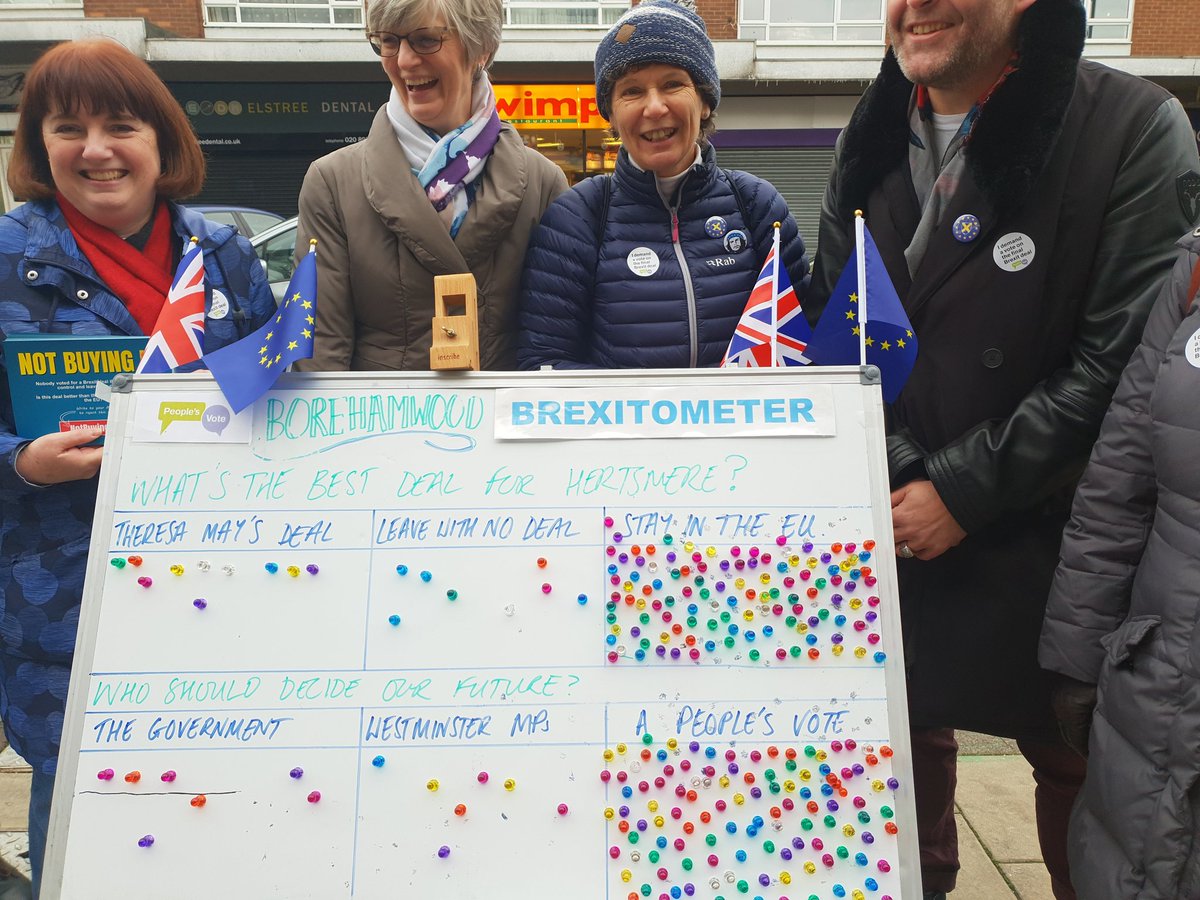 ELSTREE DENTAL
wimp
restaurant
Rab
I demand
a vote on
the final
Brexit deal
I demand
a vote on
the final
Brexit deal
inscribe
NOT BUYING
Nobody voted for a Brexit
control and leave
Is this deal better than the
the EU?
People's
Vote
BOREHAMWOOD
BREXITOMETER
WHAT'S THE BEST DEAL FOR HERTSMERE?
THERESA MAY'S DEAL
LEAVE WITH NO DEAL
STAY IN THE EU.
WHO SHOULD DECIDE OUR FUTURE?
THE GOVERNMENT
WESTMINSTER MPs
A PEOPLE'S VOTE